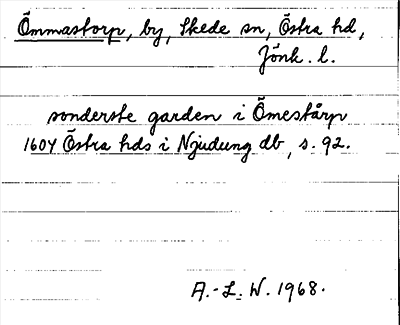 Ömmastorp, by, Skede sn, Östra hd,
Jönk. l.
sonderste garden i Ömestårp
1604 Östra hds i Njudung db, s. 92.
A.-L. W. 1968.